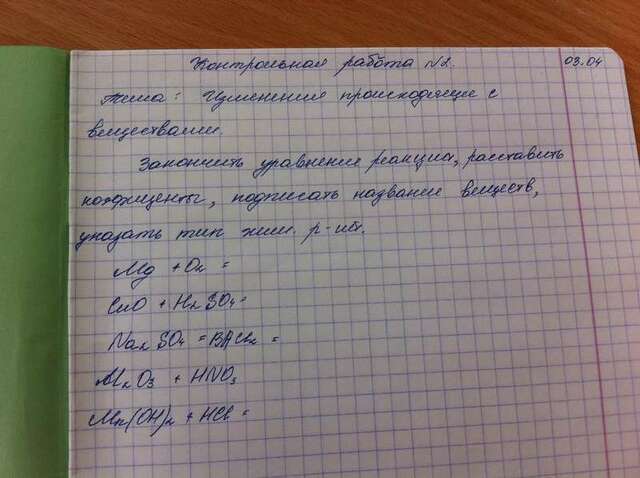 Контрольная работа №2. 03.04
Тема: Изменения происходящие с
веществами.
Закончить уравнение реакции, расставить
коэфиценты, подписать название веществ,
указать тип хим. р-ий.
Mg + O2 =
CuO + H2SO4 =
Na2SO4 = BACl2 =
Al2O3 + HNO3
Mn(OH)2 + HCl =